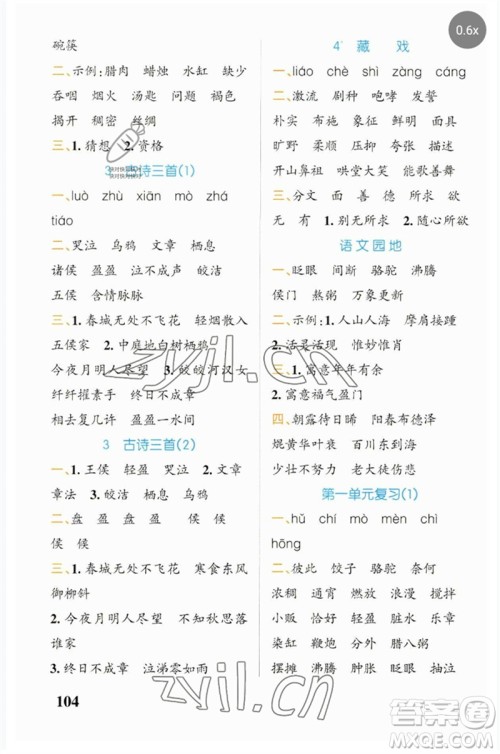 碗筷
二、示例:腊肉 蜡烛 水缸 缺少
吞咽 烟火 汤匙 问题 褐色
揭开 稠密 绸带
三、1.猜想 2.资格
3 古诗三首(1)
一、luò zhù xiān mò zhá
tiáo
二、哭泣 乌鸦 文章 栖息
诸侯 盈盈 泣不成声 皎洁
五侯 含情脉脉
三、1.春城无处不飞花 轻烟散入
五侯家 2.中庭地白树栖鸦
今夜月明人尽望 3.皎皎河汉女
纤纤擢素手 终日不成章
相去复几许 盈盈一水间
3 古诗三首(2)
一、1.王侯 轻盈 哭泣 2.文章
章法 3.皎洁 栖息 乌鸦
二、盘 盈 盈 盘 侯 侯
侯 侯
三、1.春城无处不飞花 寒食东风
御柳斜
2.今夜月明人尽望 不知秋思落
谁家
3.终日不成章 泣涕零如雨
104
4* 藏 戏
一、liáo chè shì zàng cáng
二、激流 剧种 咆哮 发誓
朴实 布施 鼻祖 柔顺 面具
旷野 郑重 压抑 夸张 描写
开山鼻祖 哄堂大笑 优哉游哉
三、分文 施展 师傅 欲求
无 有 1.别无所求 2.随心所欲
语文园地
一、眨眼 间断 骆驼 沸腾
侯门 熬粥 万象更新
二、示例:1.人山人海 摩肩接踵
2.活灵活现 惟妙惟肖
三、1.寓意年年有余
2.寓意福气盈门
四、朝露待日晞 阳春布德泽
焜黄华叶衰 百川东到海
少壮不努力 老大徒伤悲
第一单元复习(1)
一、hǔ chí mò mèn chì
hōng
二、彼此 饺子 骆驼 亲家
浓稠 通宵 褐色 搅和
小贩 轻盈
染缸 鞭炮
摆摊 沸腾 肿胀 抽泣
0.6x
快对快对快对
快对快对快对
zyjl.cn
zyjl.cn
答案圈
MXQE.COM